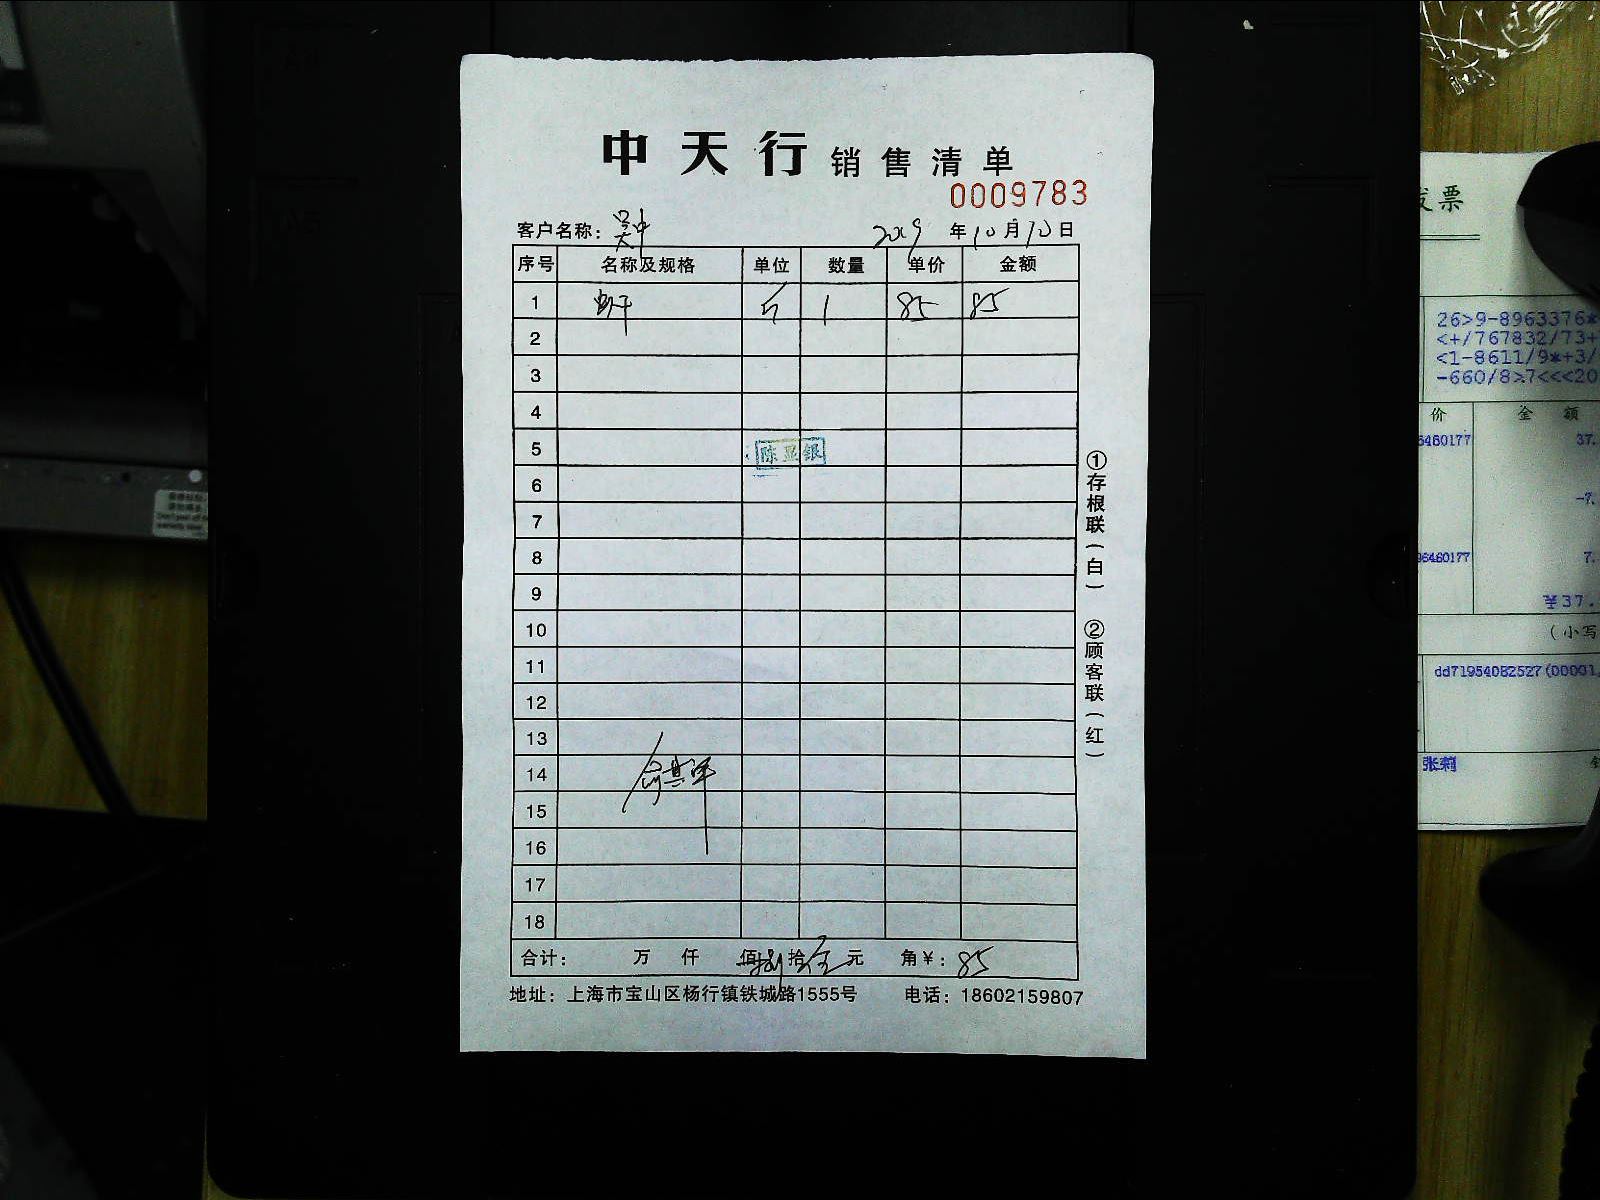 中天行 销售清单
0009783
客户名称： 吴中 2019年10月10日
序号 名称及规格 单位 数量 单价 金额
1 虾干 斤 1 85 85
2
3
4
5 陈显银
6
7
8
9
10
11
12
13
14
15
16
17
18
合计： 万 仟 佰 捌拾伍元 角￥：85
地址：上海市宝山区杨行镇铁城路1555号 电话：18602159807
①存根联（白） ②顾客联（红）
发票
26>9-8963376*
<+/767832/73+
<1-8611/9*+3/
-660/8>7<<<20
价 金 额
6460177 37.
-7.
96460177 7.
￥37.
（小写
dd71954082527(00001,
张莉